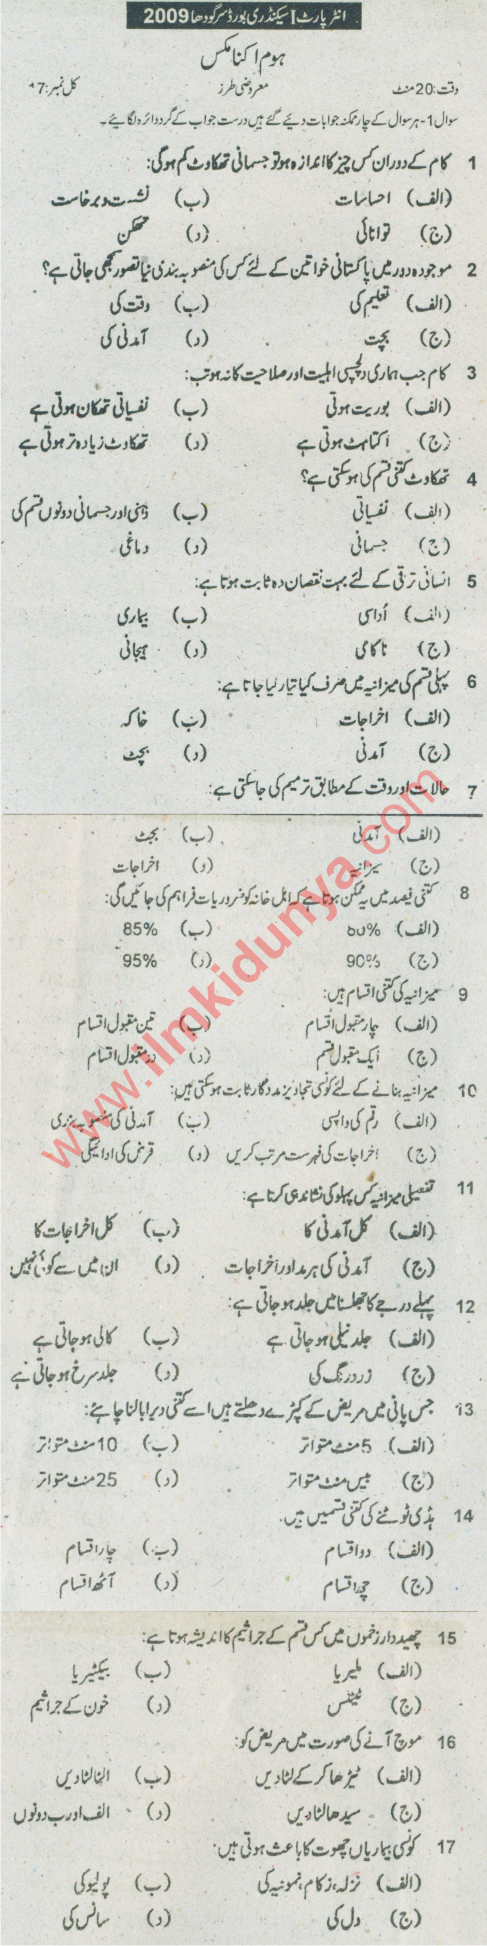 انٹر پارٹ I سیکنڈری بورڈ سرگودھا 2009
ہوم اکنامکس
وقت: 20 منٹ معروضی طرز کل نمبر: 17
سوال 1- ہر سوال کے چار ممکنہ جوابات دیئے گئے ہیں درست جواب کے گرد دائرہ لگائیے۔
1 کام کے دوران کس چیز کا اندازہ ہو تو جسمانی تھکاوٹ کم ہوگی:
(الف) احساسات (ب) نشست و برخاست
(ج) توانائی (د) تھکن
2 موجودہ دور میں پاکستانی خواتین کے لئے کس کی منصوبہ بندی نیا تصور سمجھی جاتی ہے؟
(الف) تعلیم کی (ب) وقت کی
(ج) بچت (د) آمدنی کی
3 کام جب ہماری دلچسپی اہلیت اور صلاحیت کا نہ ہو تب:
(الف) بوریت ہوتی (ب) نفسیاتی تھکان ہوتی ہے
(ج) اکتاہٹ ہوتی ہے (د) تھکاوٹ زیادہ تر ہوتی ہے
4 تھکاوٹ کتنی قسم کی ہوسکتی ہے؟
(الف) نفسیاتی (ب) ذہنی اور جسمانی دونوں قسم کی
(ج) جسمانی (د) دماغی
5 انسانی ترقی کے لئے بہت نقصان دہ ثابت ہوتا ہے:
(الف) اُداسی (ب) بیماری
(ج) ناکامی (د) ہیجانی
6 پہلی قسم کی میزانیہ میں صرف کیا تیار کیا جاتا ہے:
(الف) اخراجات (ب) خاکہ
(ج) آمدنی (د) بچٹ
7 حالات اور وقت کے مطابق ترمیم کی جاسکتی ہے:
(الف) آمدنی (ب) بجٹ
(ج) میزانیہ (د) اخراجات
8 کتنی فیصد میں یہ ممکن ہوتا ہے کہ اہل خانہ کو ضروریات فراہم کی جائیں گی:
(الف) 80% (ب) 85%
(ج) 90% (د) 95%
9 میزانیہ کی کتنی اقسام ہیں:
(الف) چار مقبول اقسام (ب) تین مقبول اقسام
(ج) ایک مقبول قسم (د) دو مقبول اقسام
10 میزانیہ بنانے کے لئے کونسی تجاویز مددگار ثابت ہوسکتی ہیں:
(الف) رقم کی واپسی (ب) آمدنی کی منصوبہ بندی
(ج) اخراجات کی فہرست مرتب کریں (د) قرض کی ادائیگی
11 تفصیلی میزانیہ کس پہلو کی نشاندہی کرتا ہے:
(الف) کل آمدنی کا (ب) کل اخراجات کا
(ج) آمدنی کی ہر مد اور اخراجات (د) ان میں سے کوئی نہیں
12 پہلے درجے کا جھلسنا میں جلد ہو جاتی ہے:
(الف) جلد نیلی ہو جاتی ہے (ب) کالی ہو جاتی ہے
(ج) زرد رنگ کی (د) جلد سرخ ہو جاتی ہے
13 جس پانی میں مریض کے کپڑے دھلتے ہیں اسے کتنی دیر ابالنا چاہئے:
(الف) 5 منٹ متواتر (ب) 10 منٹ متواتر
(ج) بیس منٹ متواتر (د) 25 منٹ متواتر
14 ہڈی ٹوٹنے کی کتنی قسمیں ہیں۔
(الف) دو اقسام (ب) چار اقسام
(ج) چھ اقسام (د) آٹھ اقسام
15 چھید دار زخموں میں کس قسم کے جراثیم کا اندیشہ ہوتا ہے:
(الف) ملیریا (ب) بیکٹیریا
(ج) ٹیٹنس (د) خون کے جراثیم
16 موچ آنے کی صورت میں مریض کو:
(الف) ٹیڑھا کر کے لٹا دیں (ب) الٹا لٹا دیں
(ج) سیدھا لٹا دیں (د) الف اور ب دونوں
17 کونسی بیماریاں چھوت کا باعث ہوتی ہیں:
(الف) نزلہ، زکام، نمونیہ کی (ب) پولیو کی
(ج) دل کی (د) سانس کی
www.ilmkidunya.com